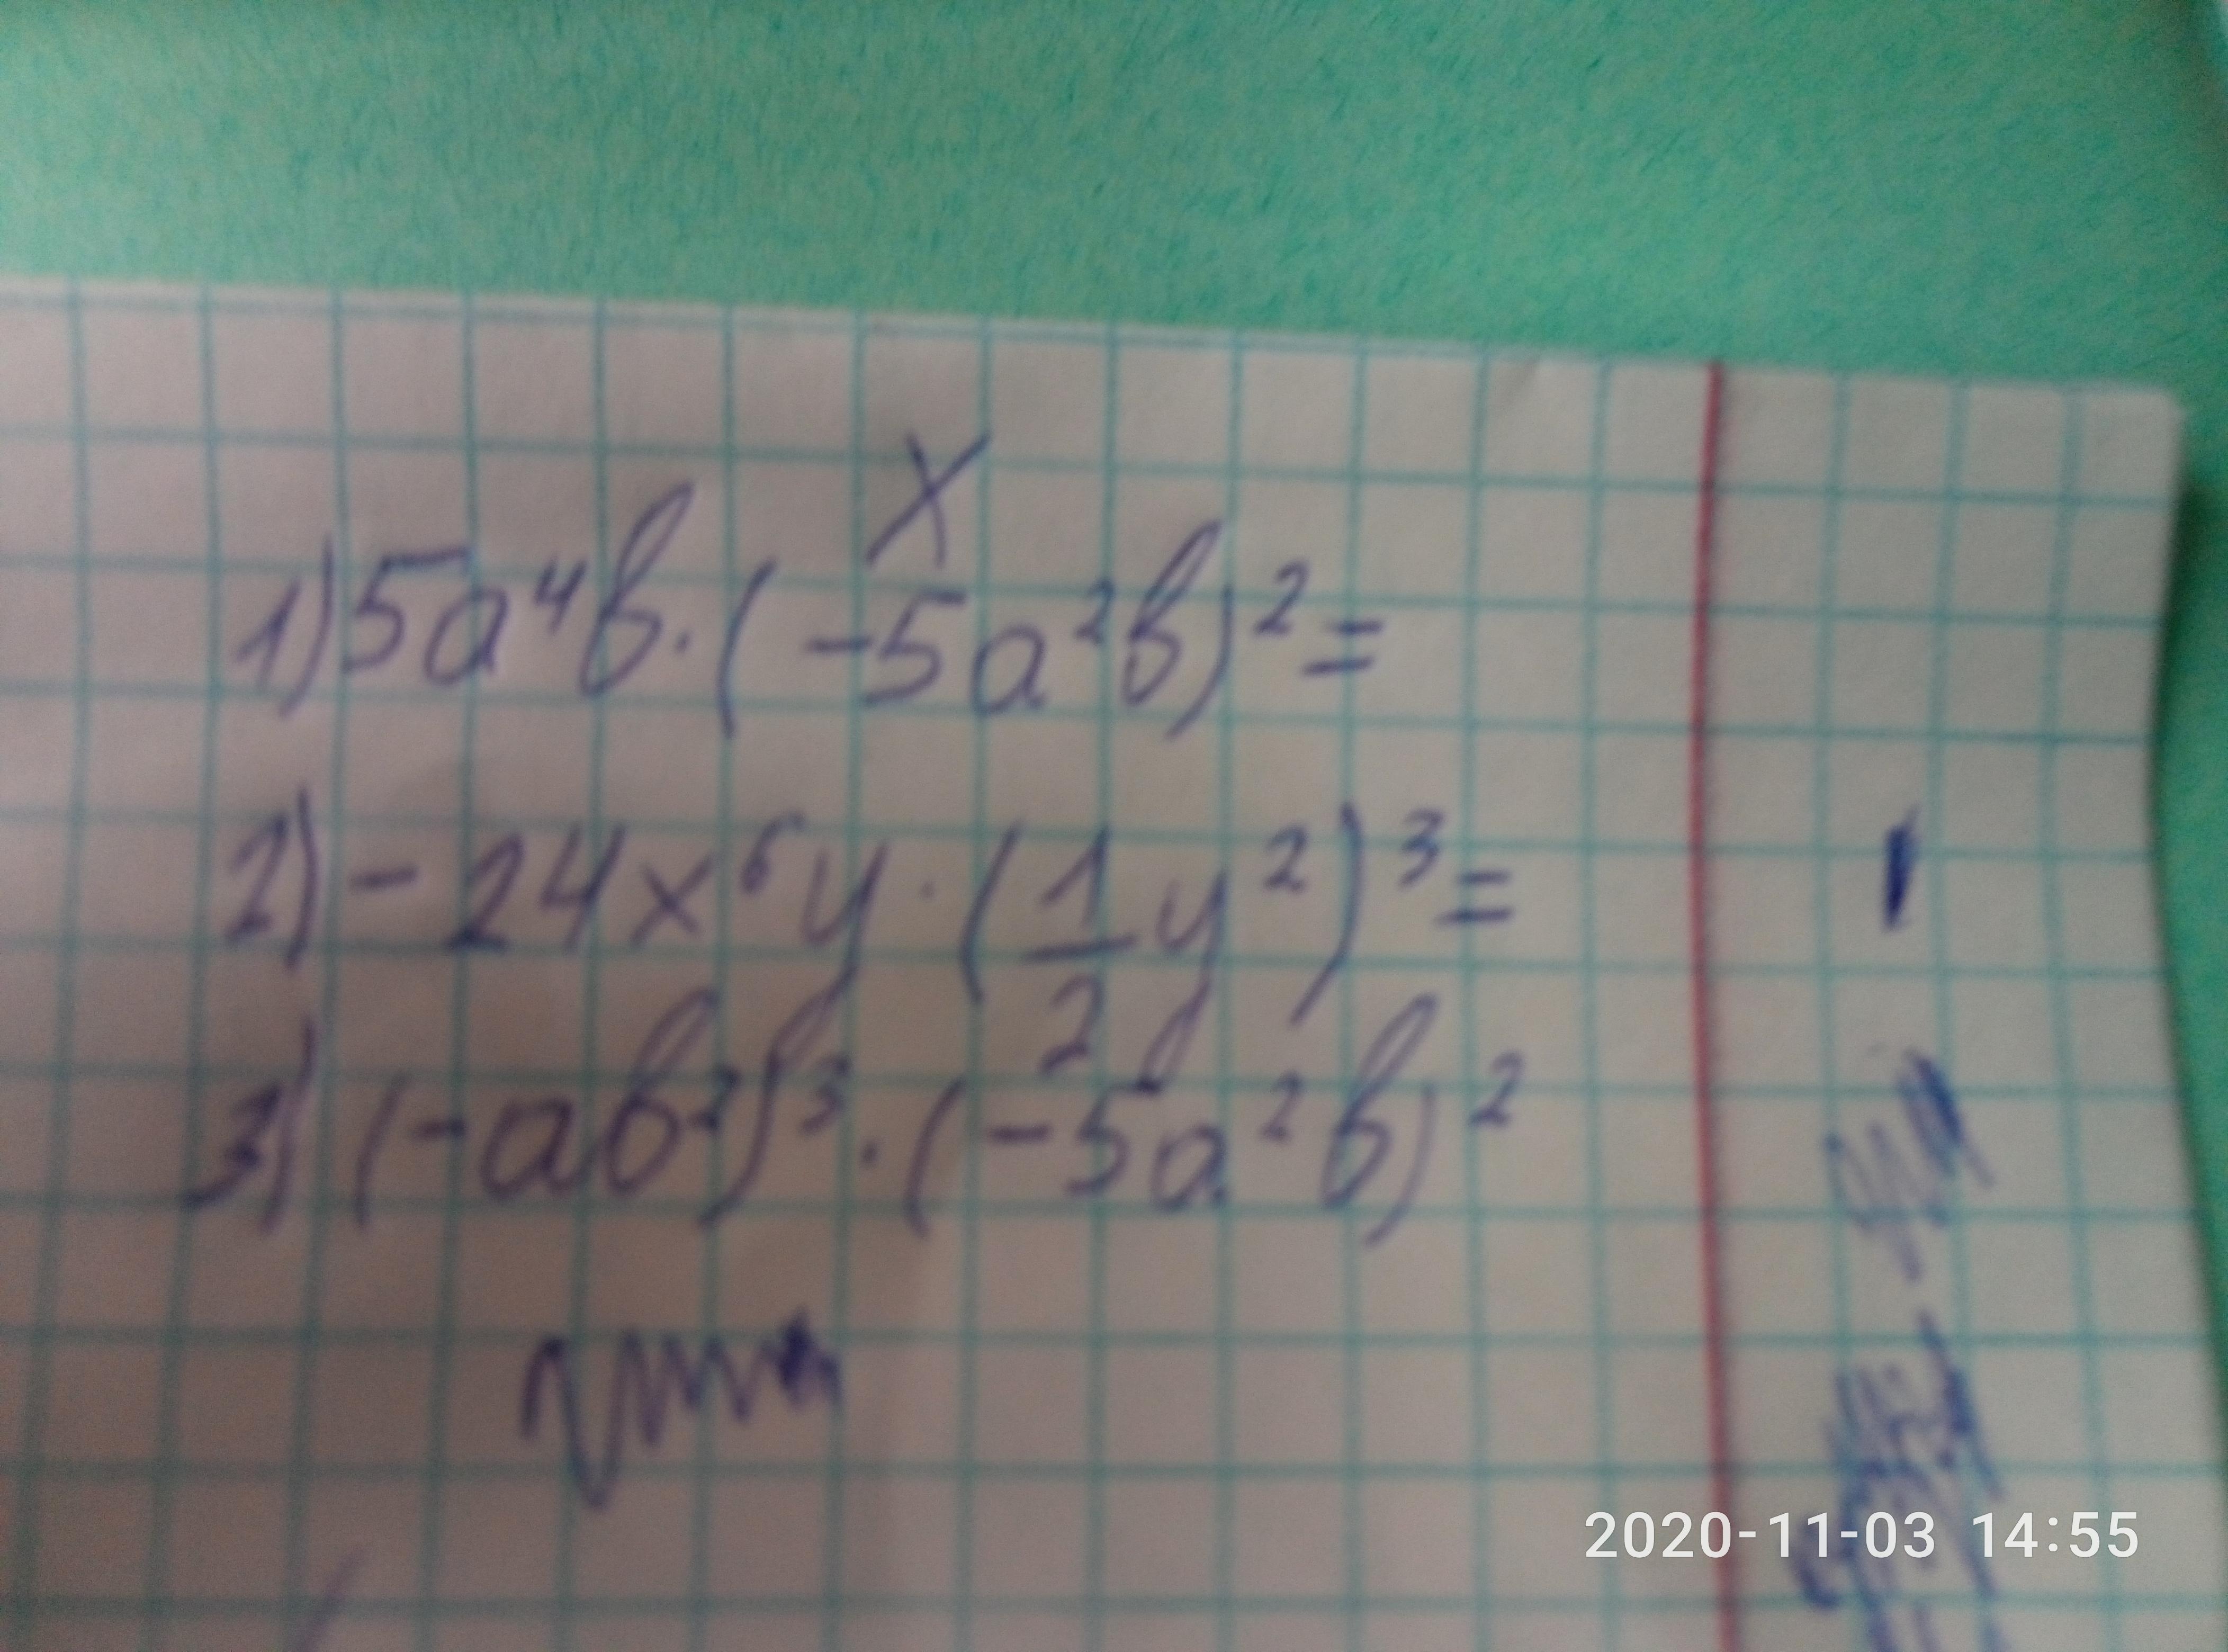 х
1) 5a⁴b·(-5a²b)²=
2) -24x⁶y·(1/2y²)³=
3) (-ab²)³·(-5a²b)²
2020-11-03 14:55